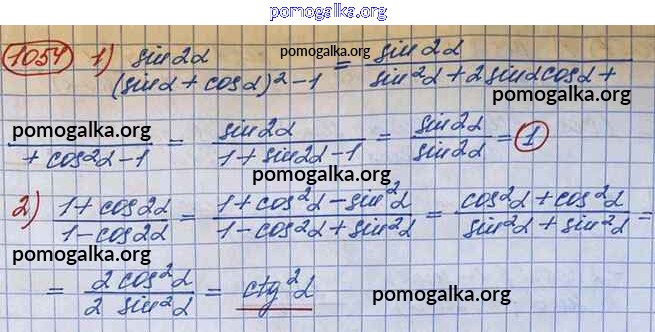 pomogalka.org
1054 1) sin2α / (sinα + cosα)² − 1 = pomogalka.org sin2α / sin²α + 2sinαcosα +
pomogalka.org
pomogalka.org / + cos²α − 1 = sin2α / 1 + sin2α − 1 = sin2α / sin2α = 1
pomogalka.org
2) 1 + cos2α / 1 − cos2α = 1 + cos²α − sin²α / 1 − cos²α + sin²α = cos²α + cos²α / sin²α + sin²α =
pomogalka.org
= 2cos²α / 2 sin²α = ctg²α pomogalka.org